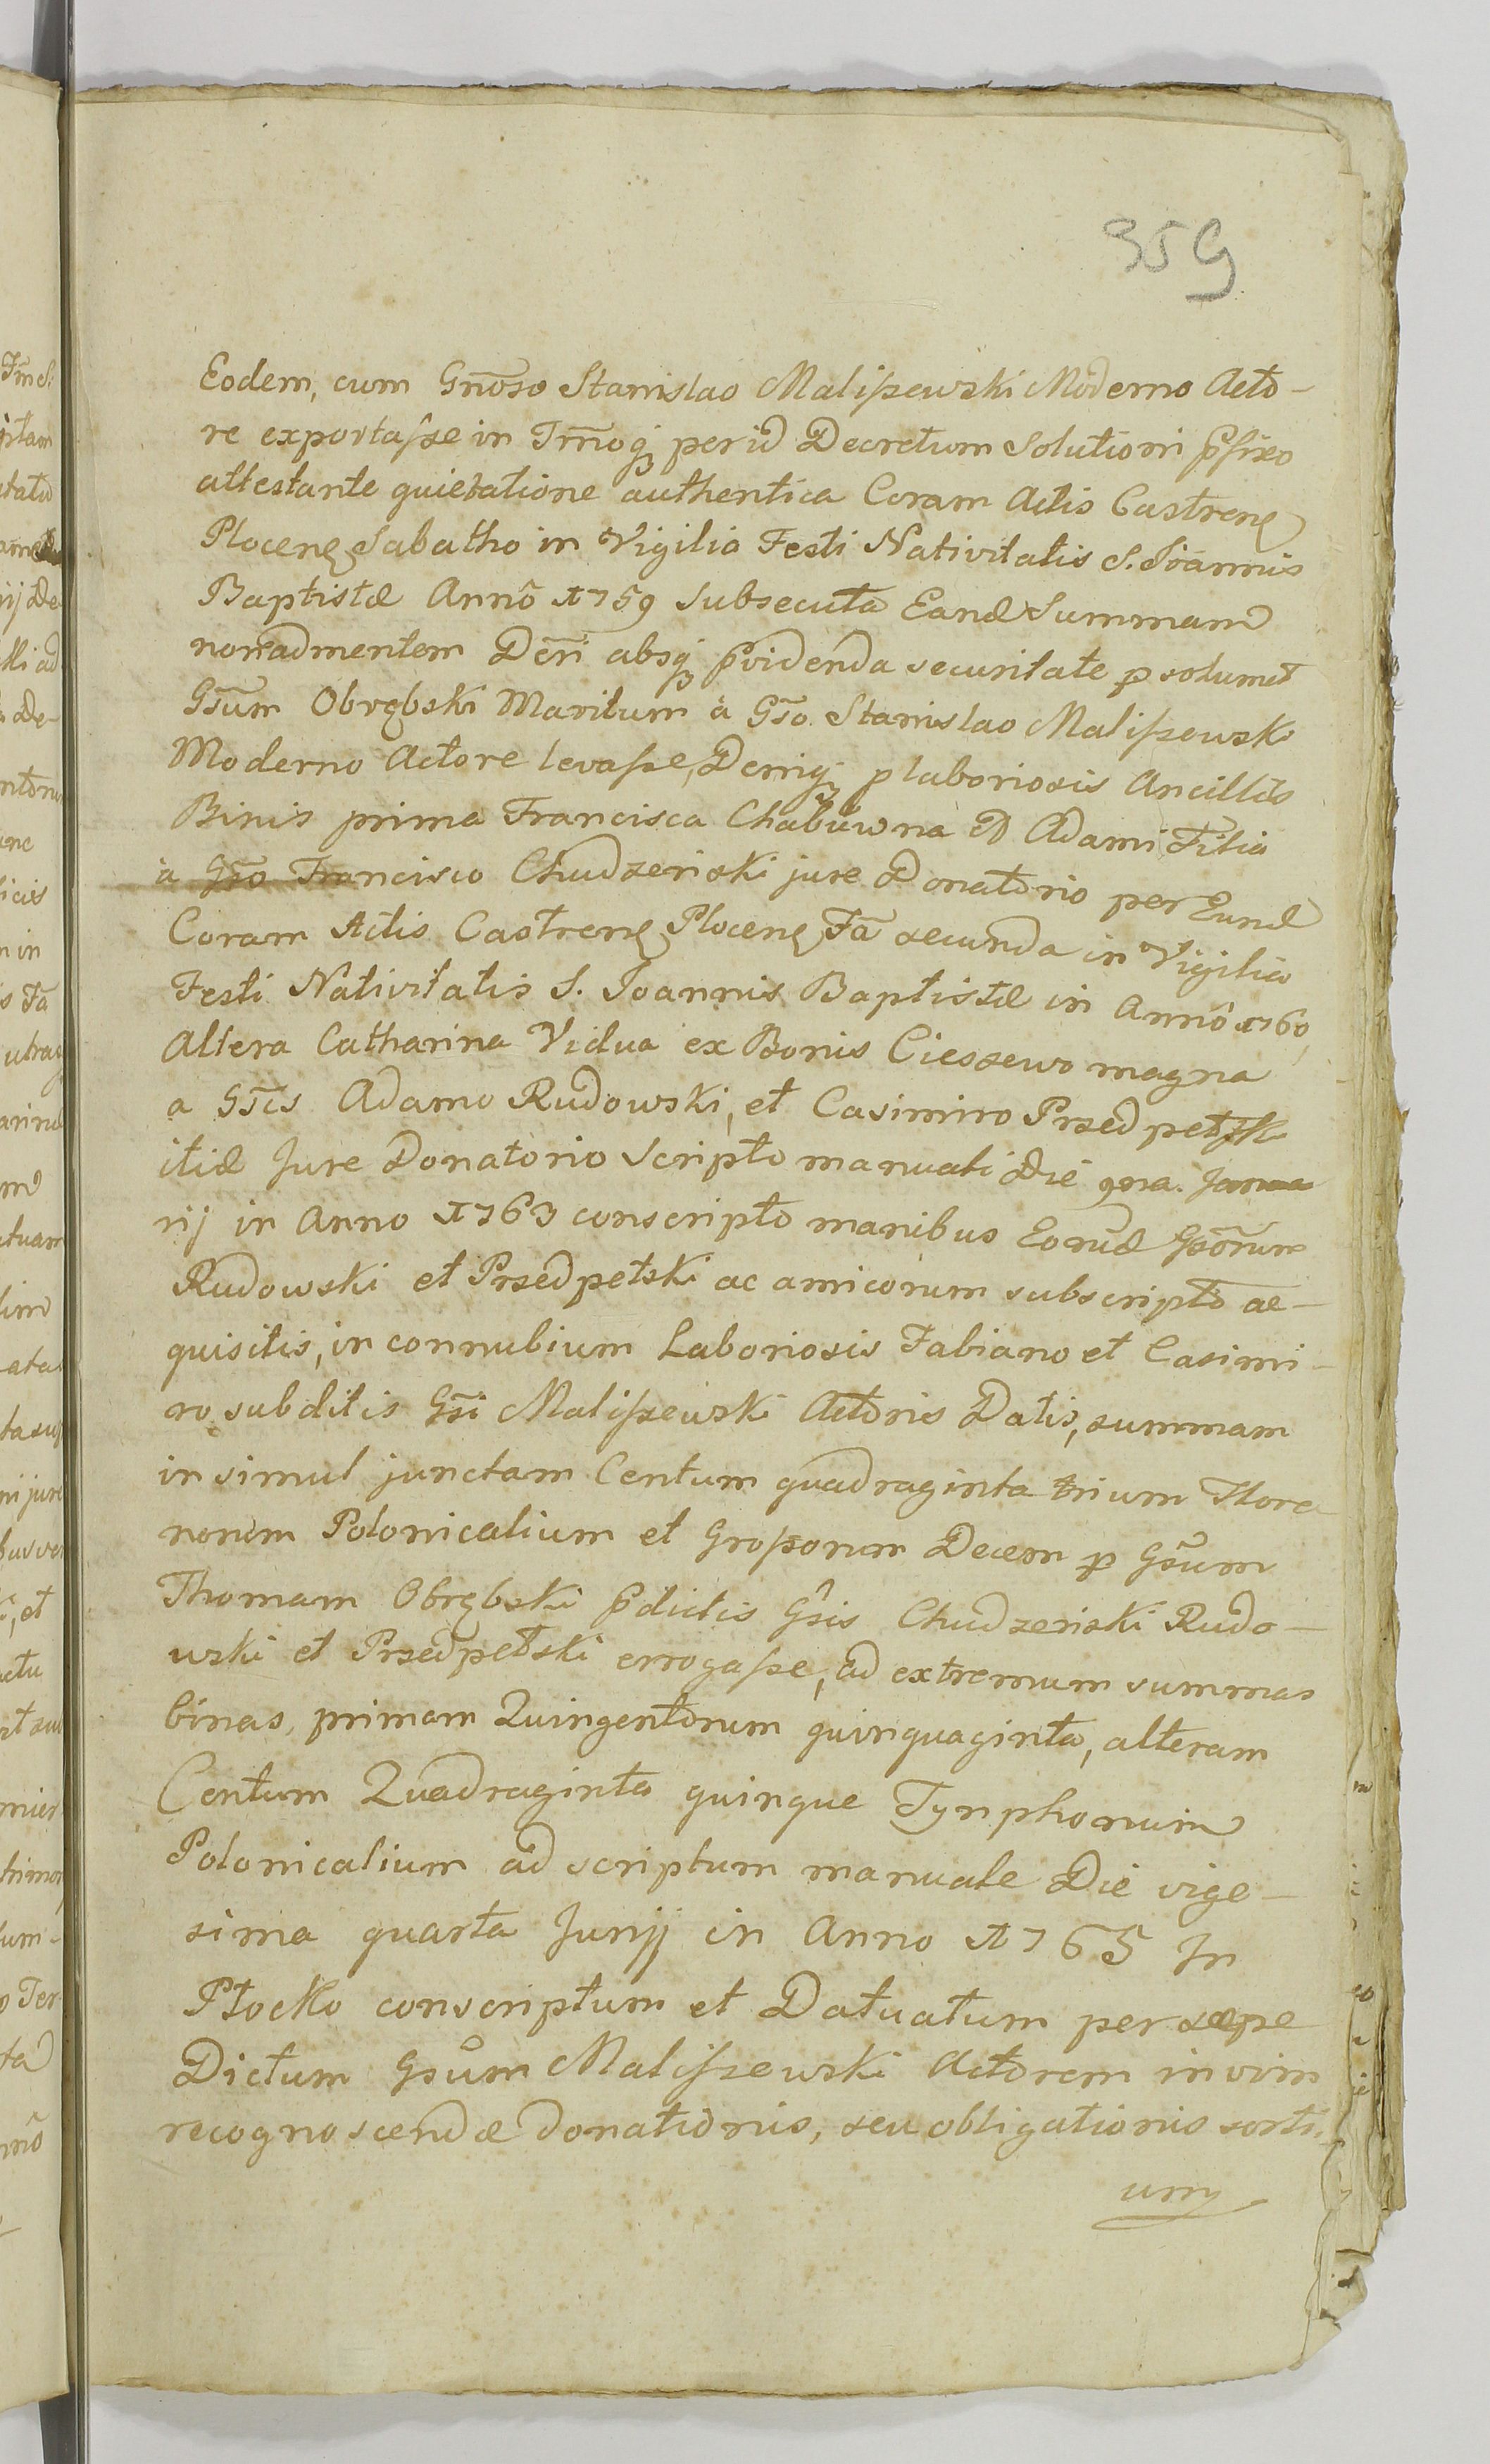 359
Eodem, cum Gnõso Stanislao Maliszewski Moderno Acto-
re exportasse in Tmõq; per id Decretum Solutioni p̃fixo
attestante quietatione authentica Coram Actis Castren̄
Plocen̄ Sabatho in Vigilia Festi Nativitatis S. Joannis
Baptistæ Annô 1759 subsecuta Eand Summam
non ad mentem Dcri absq; p̃videnda securitate p solum et
Gsũm Obrębski Maritum à Gsõ. Stanislao Maliszewski
Moderno Actore levasse, Deniq; p laboriosis Ancillis
Binis prima Francisca Chabũwna Adami Filia
à Gsõ Francisco Chudzeński jure Donatorio per Eund
Coram Actis Castren̄ Plocen̄ Fã secunda in Vigilia
Festi Nativitatis S. Joannis Baptistæ in Annô 1760
Altera Catharina Vidua ex Bonis Cieszewo magna
a Gsĩs Adamo Rudowski, et Casimiro Przedpełski
itid Jure Donatorio Scripto manuali Die 9na. Janua
rij in Anno 1763 conscripto manibus Eorũd Gsõrum
Rudowski et Przedpełski ac amicorum subscripto ac-
quisitis, in connubium Laboriosis Fabiano et Casimi-
ro subditis Gsĩ Maliszewski Actoris Datis, summam
in simul junctam Centum quadraginta trium Flore
norum Polonicalium et Grossorum Decem p Gsũm
Thomam Obrębski p̃dictis Gsĩs Chudzeński Rudo-
wski et Przedpełski errogasse, ad extremum summas
binas, primam Quingentorum quinquaginta, alteram
Centum Quadraginta quinque Tynphonum
Polonicalium ad scriptum manuale Die vige-
sima quarta Junij in Anno 1765 In
Płocko conscriptum et Datuatum per sæpe
Dictum Gsũm Maliszewski Actorem in vim
recognoscendæ donationis, seu obligationis sorti-
um